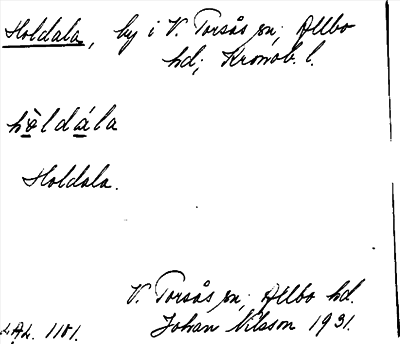 Holdala, by i V. Torsås sn; Allbo
hd; Kronob. l.
hòldála
Holdala.
V. Torsås sn; Allbo hd.
LAL. 1181. Johan Nilsson 1931.